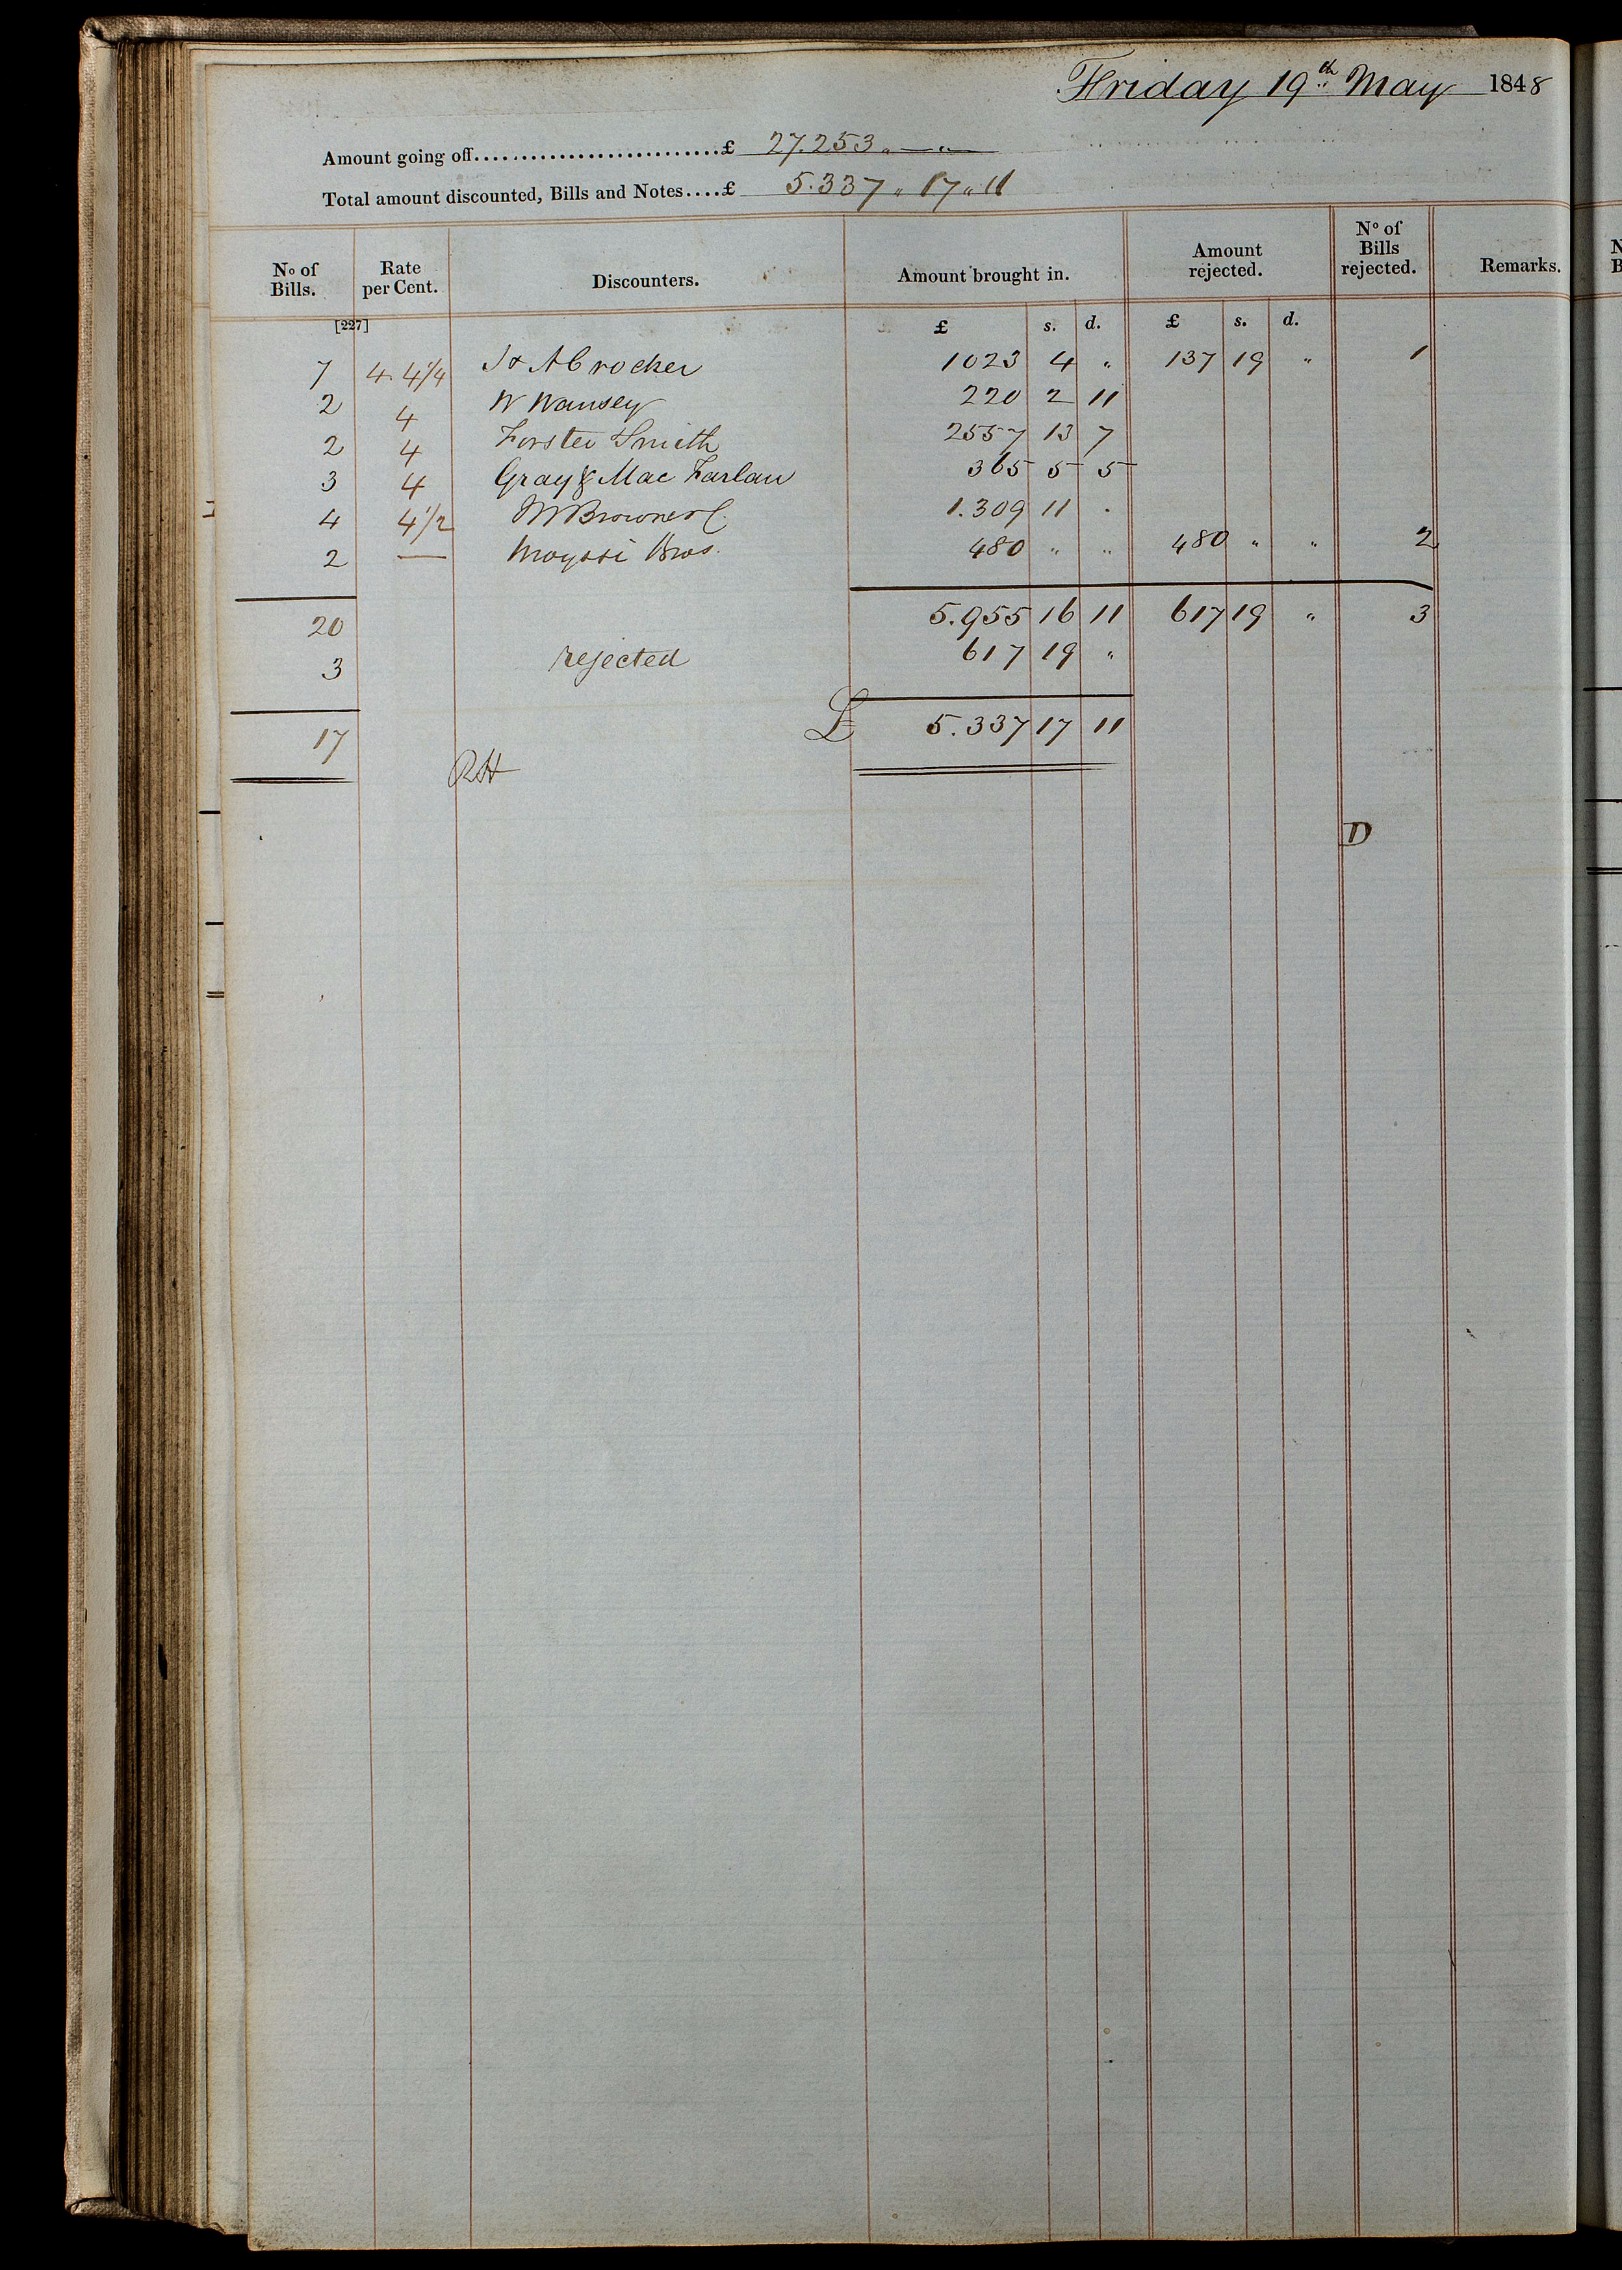 Friday 19th May 1848
Amount going off........................£ 27.253 " — " —
Total amount discounted, Bills and Notes....£ 5.337 " 17 " 11
No of Bills. Rate per Cent. Discounters. Amount brought in. Amount rejected. No of Bills rejected. Remarks.
[227] £ s. d. £ s. d.
7 4. 4 1/4 J & A Crocker 1023 4 " 137 19 " 1
2 4 W Wansey 220 2 11
2 4 Forster Smith 2557 13 7
3 4 Gray & Mac Farlan 365 5 5
4 4 1/2 M Browne & C. 1.309 11 .
2 — Bros. 480 " " 480 " " 2
20 5.955 16 11 617 19 " 3
3 rejected 617 19 "
17 £ 5.337 17 11
RH
D